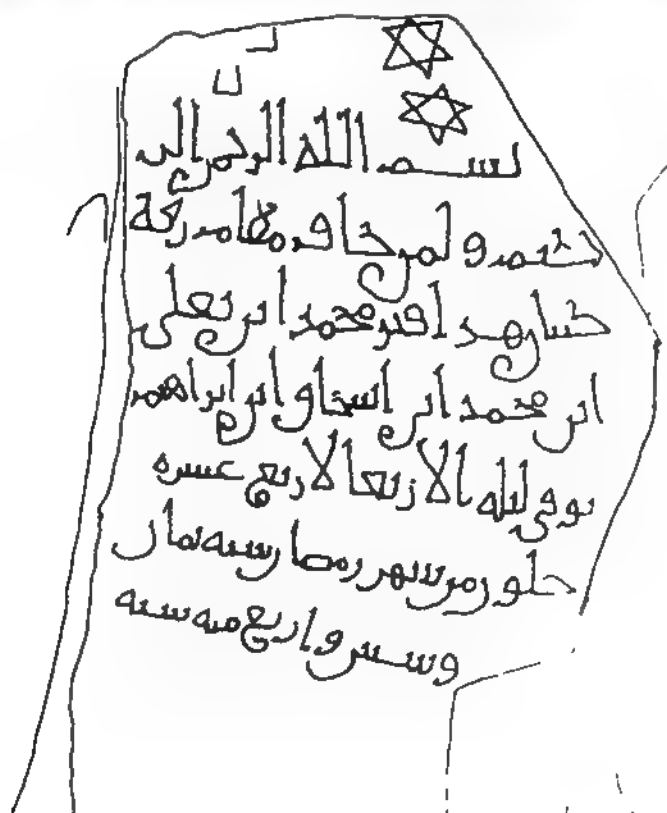 بسم الله الرحمن الر
حيم ولمن خاف مقام ربه
جنتان هذا قبر محمد ابن يعلى
ابن محمد ابن اسحاق ابن ابراهيم
توفى ليلة الاربعا لاربع عشرة
خلون من شهر رمضان سنة ثمان
وستين واربع مية سنة